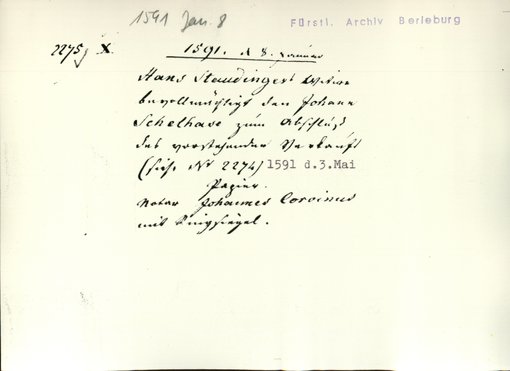 1591 Jan. 8
Fürstl. Archiv Berleburg
2275 X. 1591. d 8. Januar
Hans Staudinger's Witwe
bevollmächtigt den Johann
Schelhase zum Abschluß
des vorstehenden Verkauft
(sieh. Nr 2274) 1591 d.3.Mai
Papier.
Notar Johannes Corvinus
mit Ringsiegel.